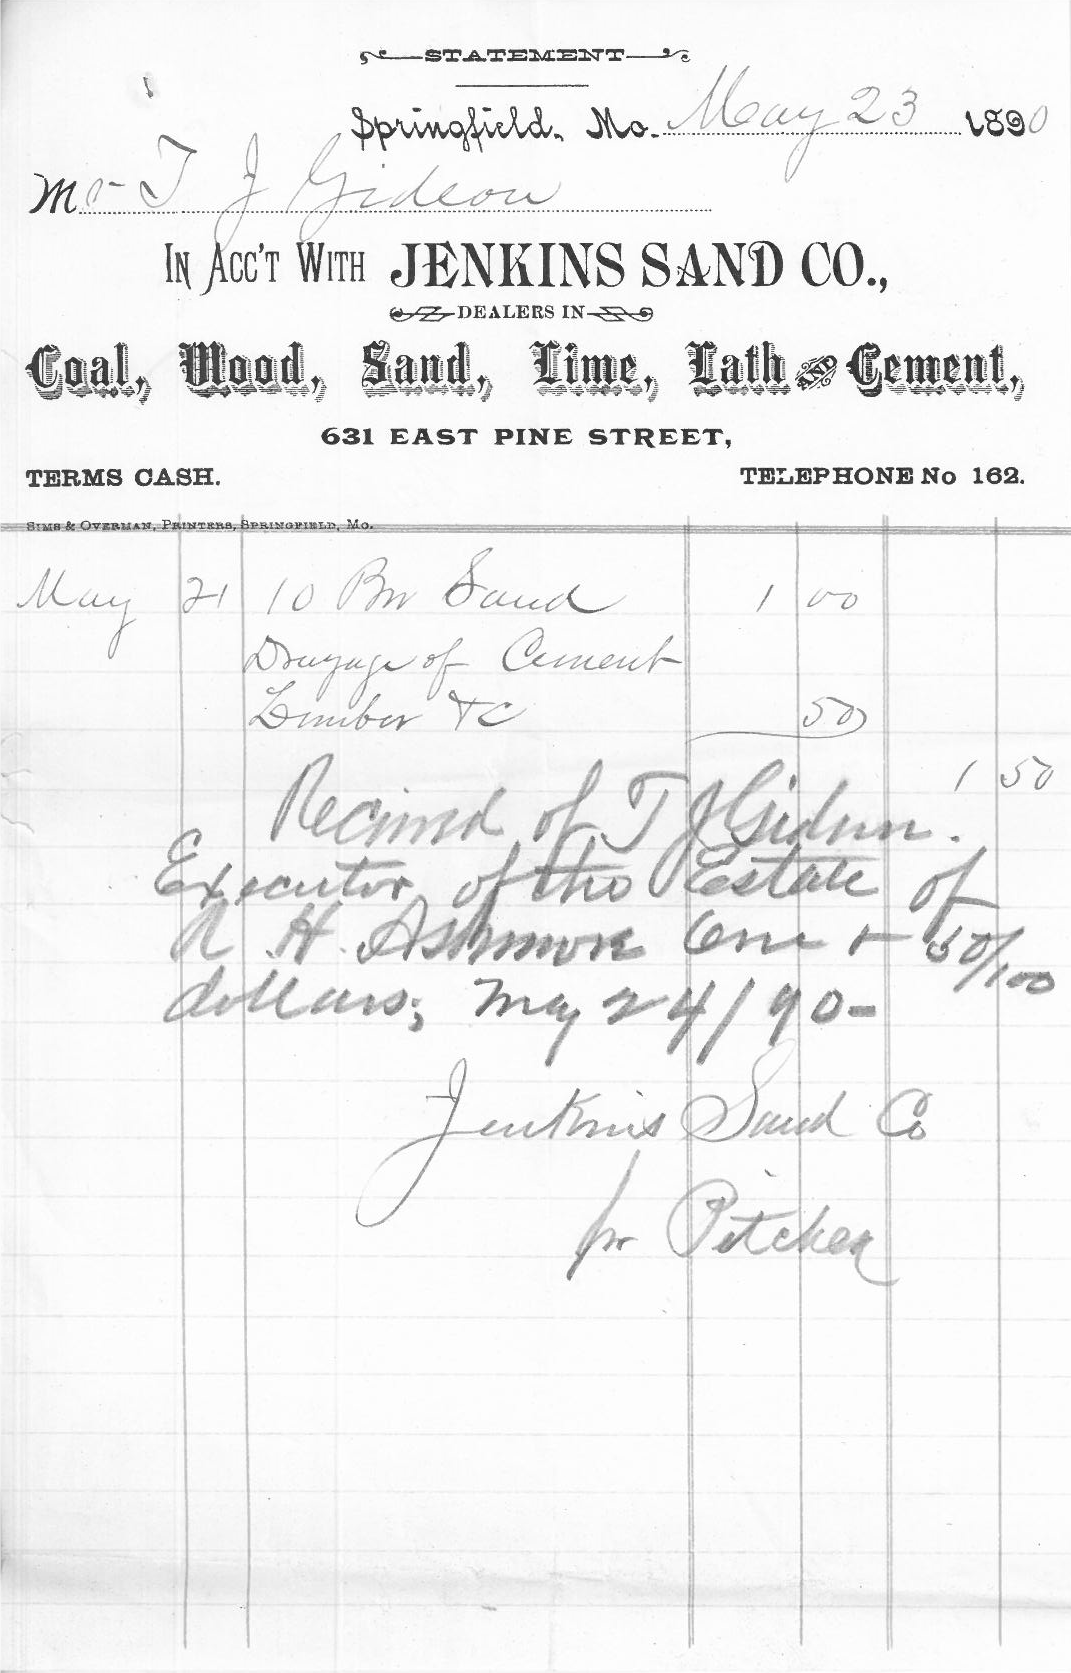 STATEMENT
Springfield, Mo. May 23 1890
Mr T J Gideon
IN ACC'T WITH JENKINS SAND CO.,
DEALERS IN
Coal, Wood, Sand, Lime, Lath AND Cement,
631 EAST PINE STREET,
TERMS CASH. TELEPHONE No 162.
SIMS & OVERMAN, PRINTERS, SPRINGFIELD, MO.
May 21 10 Bu Sand 1 00
Drayage of Cement
Lumber &C 50
1 50
Received of T J Gideon.
Executor of the Estate of
A H Ashmore One + 50/100
dollars; May 24/90-
Jenkins Sand Co
pr Pitcher